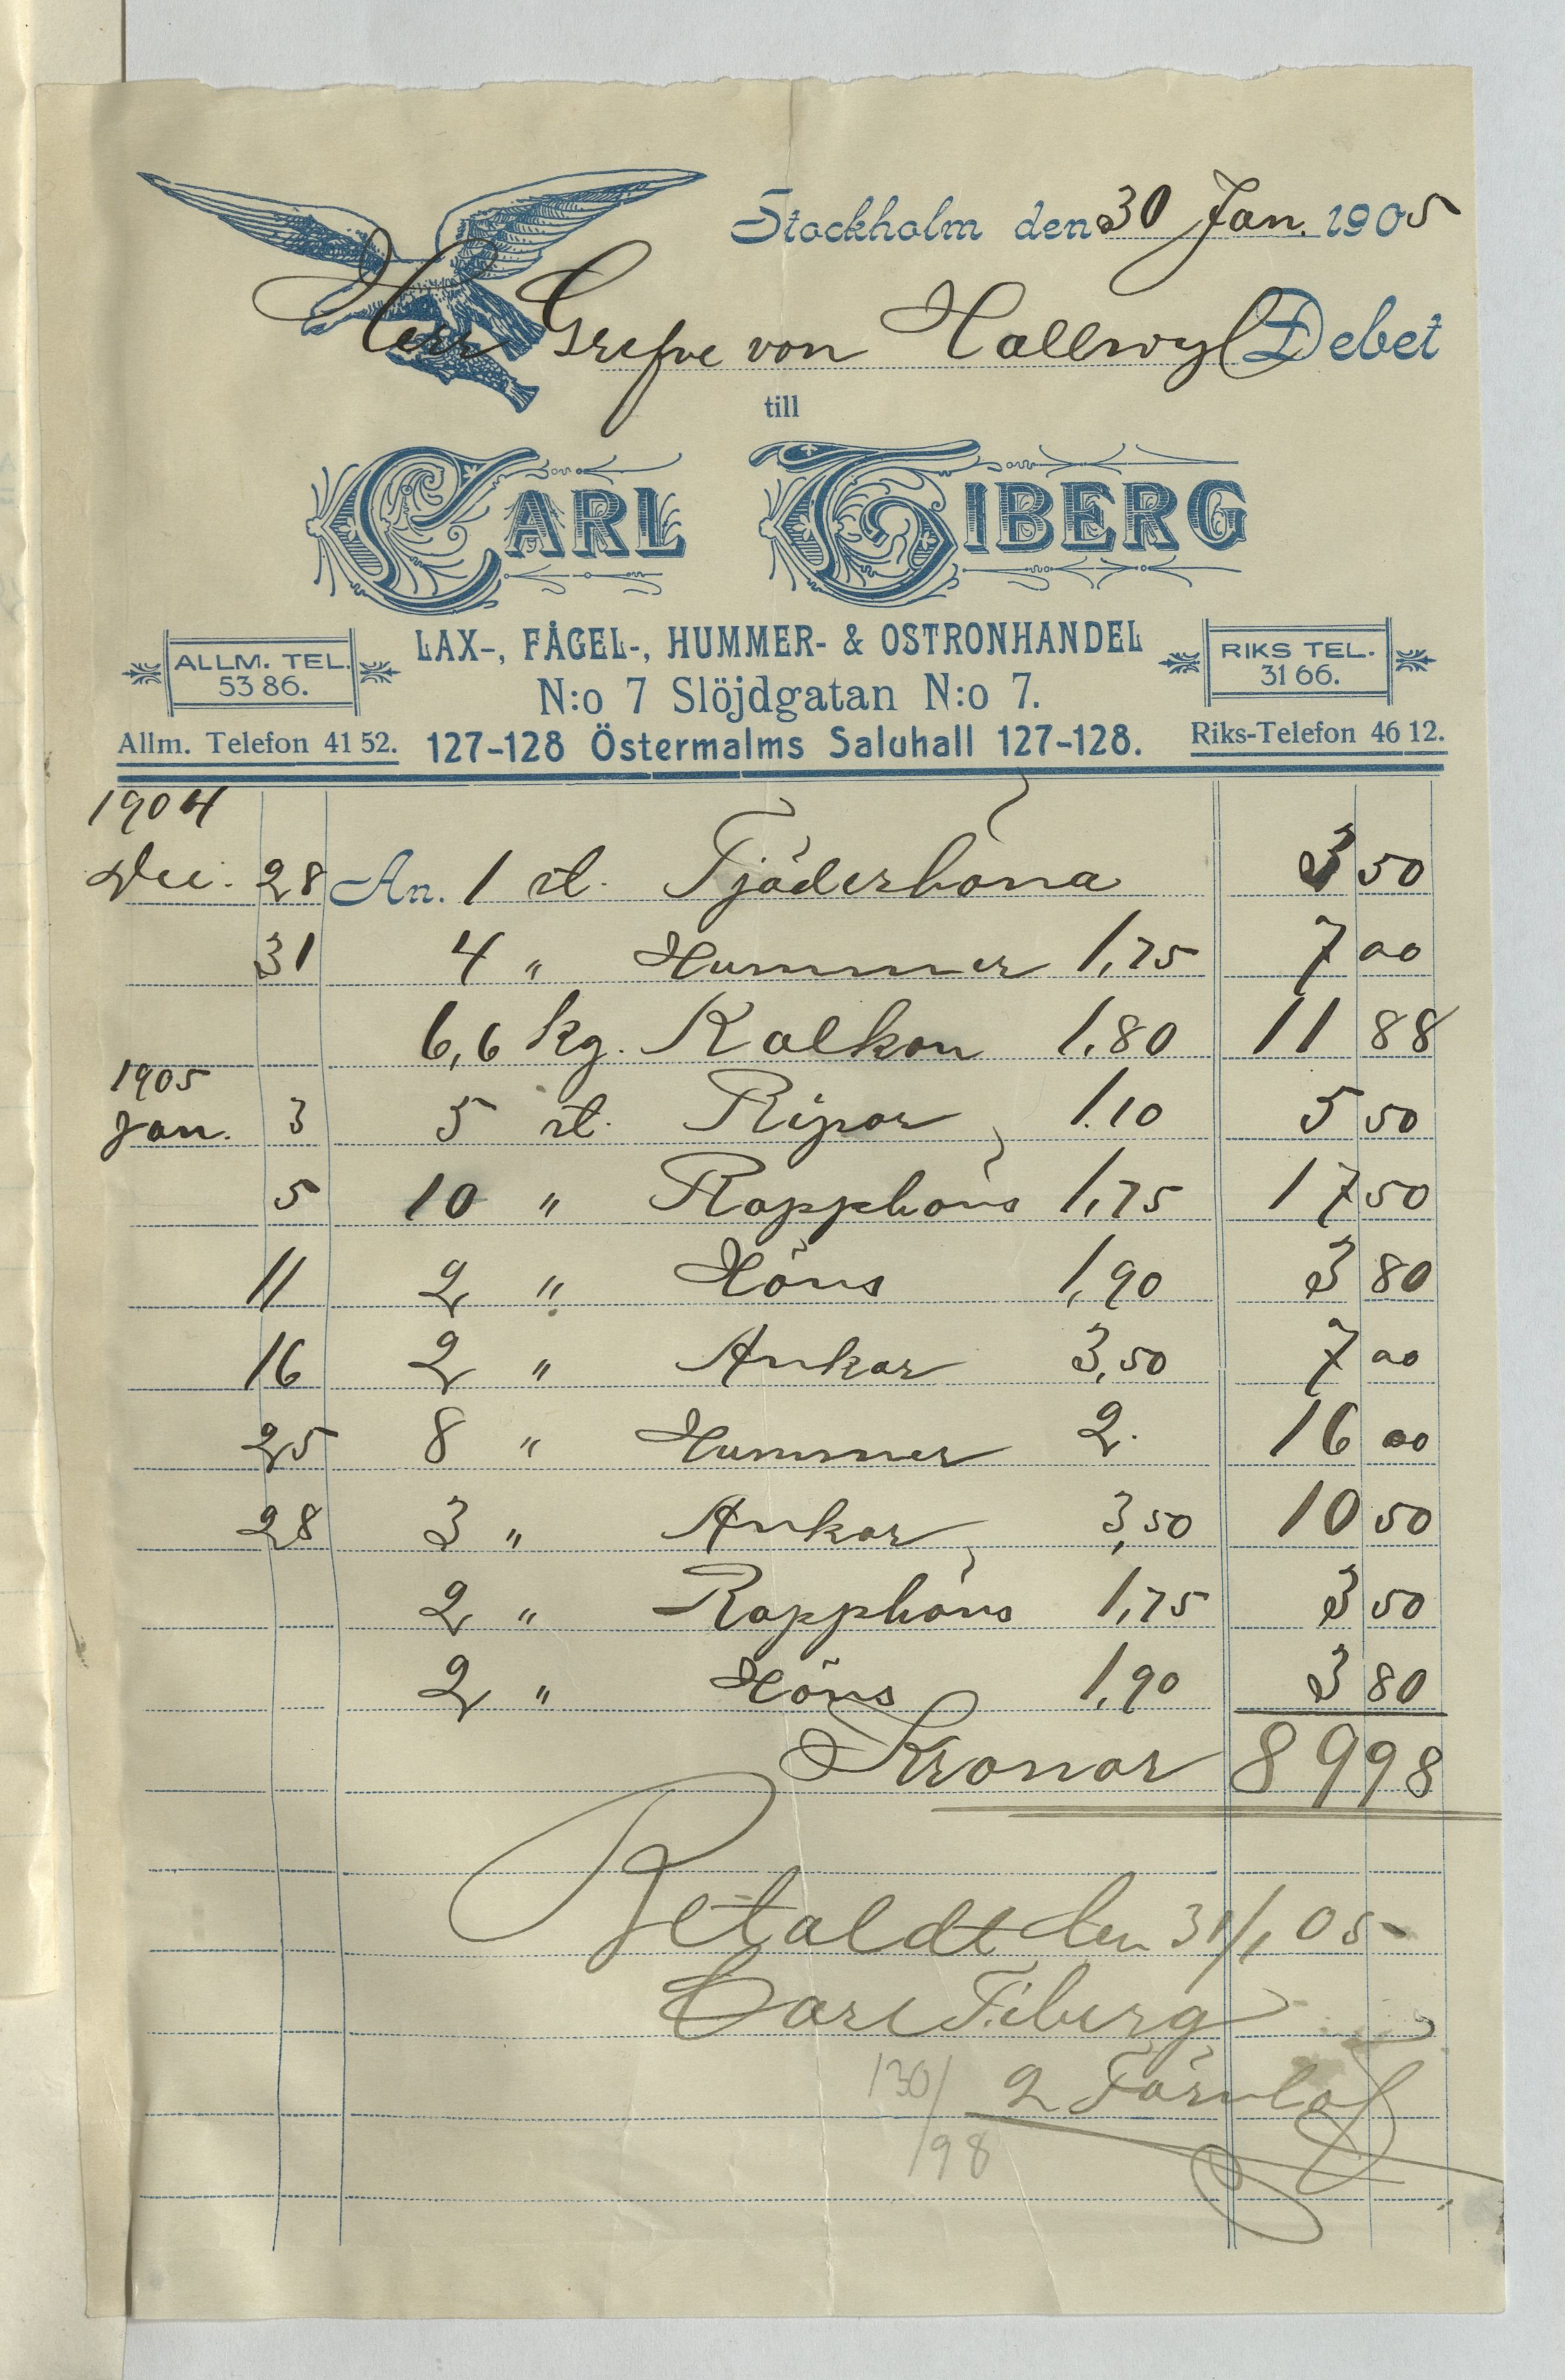 Stockholm den 30 Jan. 1905
Herr Grefve von Hallwyl Debet
till
CARL TIBERG
LAX-, FÅGEL-, HUMMER- & OSTRONHANDEL
ALLM. TEL. 53 86.
RIKS TEL. 31 66.
N:o 7 Slöjdgatan N:o 7.
Allm. Telefon 41 52. 127-128 Östermalms Saluhall 127-128. Riks-Telefon 46 12.
1904
Dec. 28 An. 1 st. Tjäderhöna 3 50
31 4 " Hummer 1,75 7 00
6,6 kg. Kalkon 1,80 11 88
1905
Jan. 3 5 st. Ripor 1.10 5 50
5 10 " Rapphöns 1,75 17 50
11 2 " Höns 1,90 3 80
16 2 " Ankor 3,50 7 00
25 8 " Hummer 2. 16 00
28 3 " Ankor 3,50 10 50
2 " Rapphöns 1,75 3 50
2 " Höns 1,90 3 80
Kronor 89 98
Betaldt den 31/1 05
Carl Tiberg
130/
198